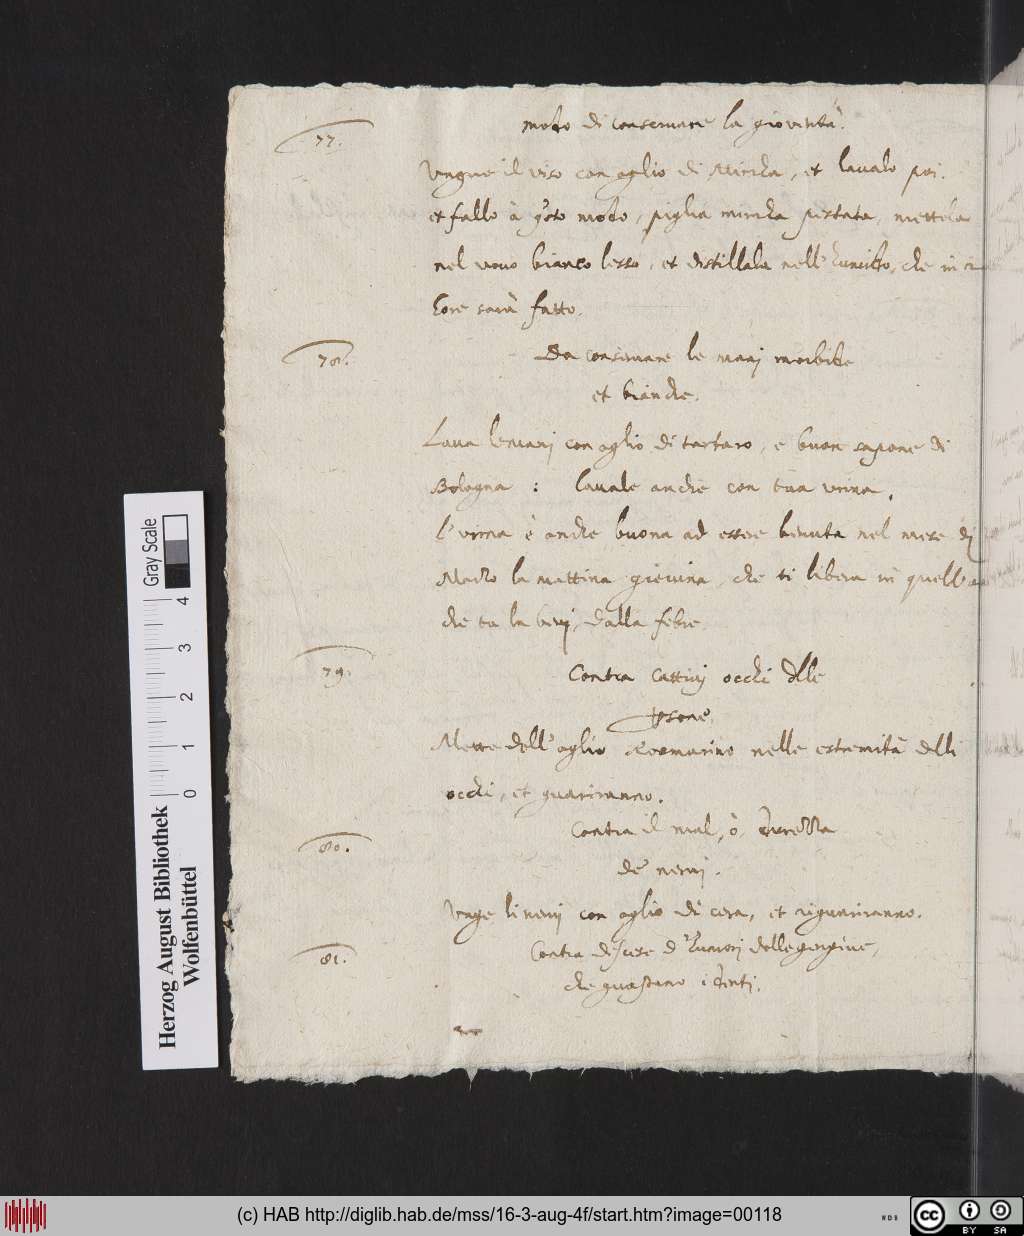 77.
modo di conservare la gioventù.
Ungue il viso con oglio di Mircha, et lavalo poi.
et fallo à q̃sto modo, piglia mircha pestata, mettela
nel vovo bianco lesso, et distillala nell' humido, che in
hore sarà fatto.
78.
Da conservare le manj morbide
et bianche.
Lava le manj con oglio di tartaro, e buon sapone di
Bologna : lavale anche con tua vrina.
l'vrina è anche buona ad essere bevuta nel mese di
Marzo la mattina gieiuna, che ti libera in quell'
che tu la bevj, dalla febre.
79.
Contra cattivj occhi dlle
p̱sone.
Mette dell' oglio Rosmarino nelle estremità delli
occhi, et guariranno.
80.
Contra il mal, ò, durezza
de' nervi.
Unge li nervj con oglio di cera, et riguariranno.
81.
Contra discese d' humorj delle gengive,
che guastano i denti.
Herzog August Bibliothek
Wolfenbüttel
Gray Scale
0 1 2 3 4
(c) HAB http://diglib.hab.de/mss/16-3-aug-4f/start.htm?image=00118
cc BY SA